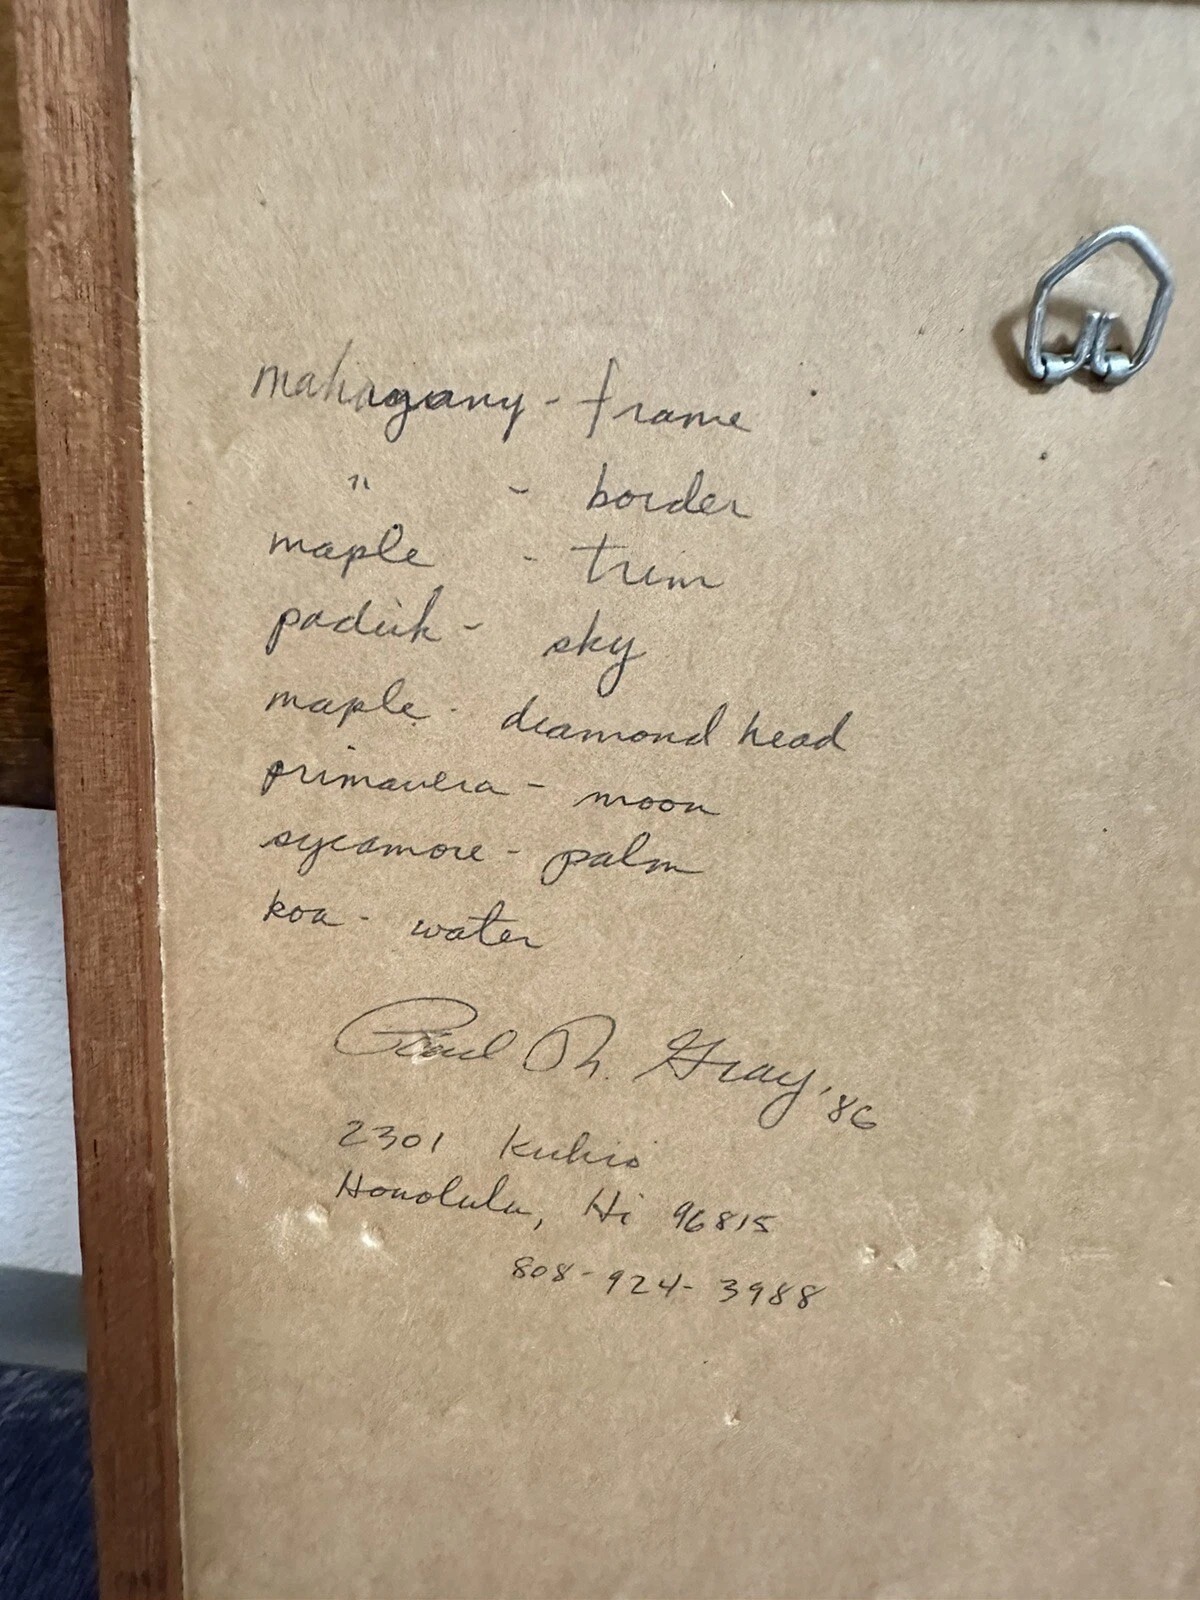 mahogany - frame
" - border
maple - trim
paduk - sky
maple - diamond head
primavera - moon
sycamore - palm
koa - water
Paul Gray, '86
2301 Kuhio
Honolulu, Hi 96815
808-924-3988